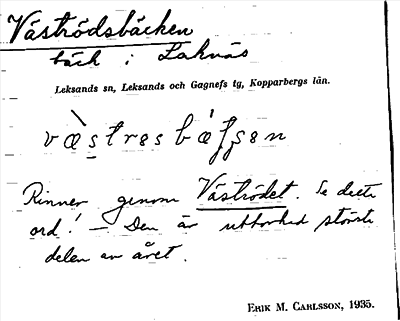 Väströdsbäcken
bäck i Laknäs
Leksands sn, Leksands och Gagnefs tg, Kopparbergs län.
Rinner genom Väströdet. Se detta
ord! – Den är uttorkad största
delen av året.
ERIK M. CARLSSON, 1935.